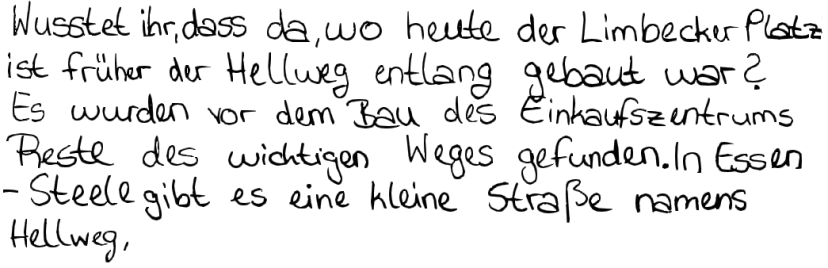 Wusstet ihr, dass da, wo heute der Limbecker Platz
ist früher der Hellweg entlang gebaut war?
Es wurden vor dem Bau des Einkaufszentrums
Reste des wichtigen Weges gefunden. In Essen
- Steele gibt es eine kleine Straße namens
Hellweg,